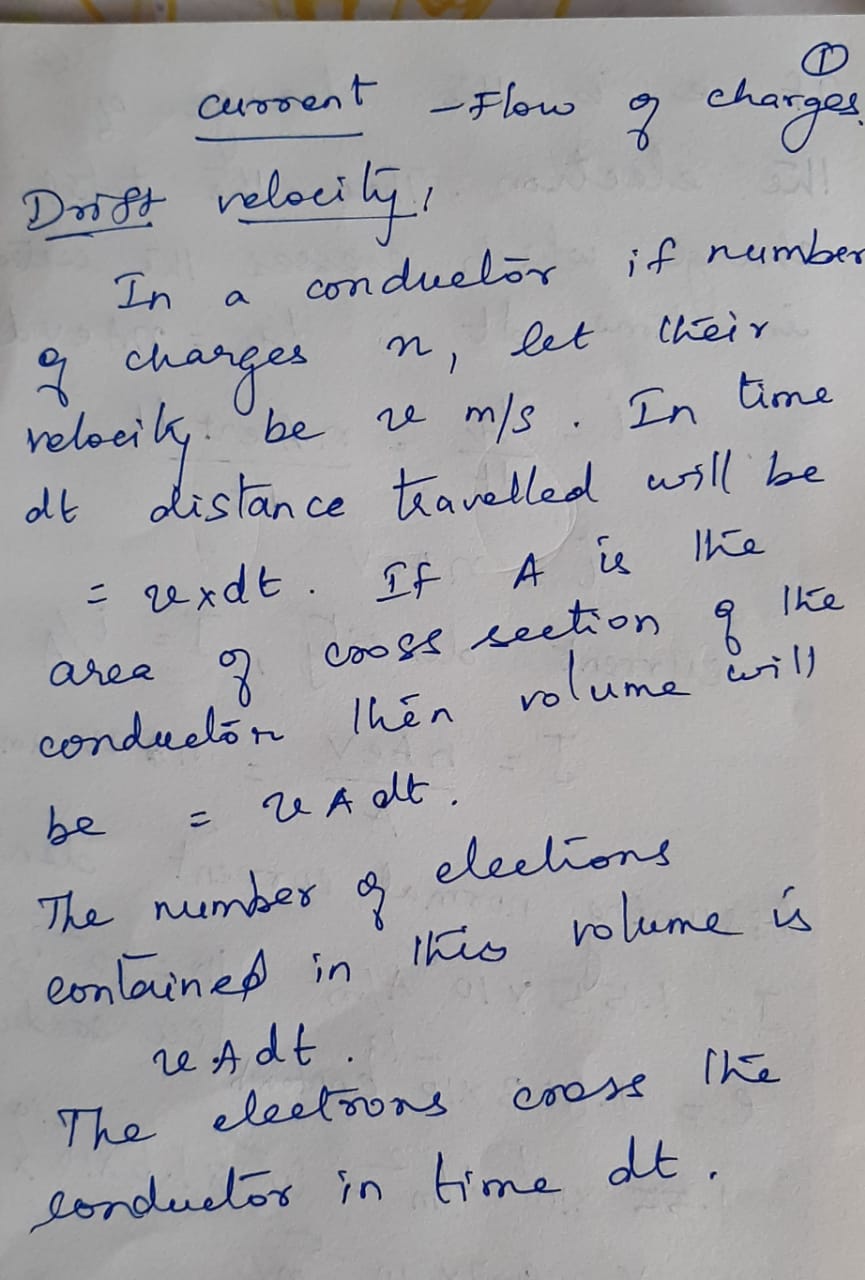 ①
current - Flow of charges.
Drift velocity,
In a conductor if number
of charges n, let their
velocity be v m/s. In time
dt distance travelled will be
= v x dt. If A is the
area of cross section of the
conductor then volume will
be = v A dt.
The number of elections
contained in this volume is
v A dt.
The electrons cross the
conductor in time dt.